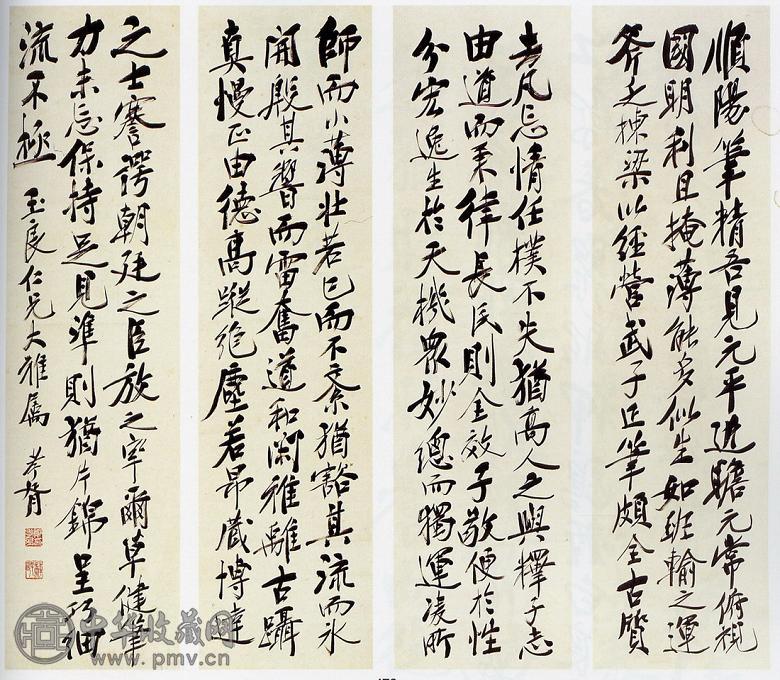 順陽筆精吾見元平迥瞻元常俯視
國明利且掩薄能多似生如班輸之運
斧之棟梁以經營武子正筆頗全古質
去凡忘情任樸不失猶高人之與釋子志
由道而秉律長民則全效子敬便於性
分宏逸生於天機眾妙總而獨運凌所
師而小薄壯若已而不紊猶豁其流而冰
開殷其響而雷奮道和閑雅離古躡
真慢正由德高蹤絕塵若昂藏博達
之士謇諤朝廷之臣放之率爾草健筆
力未忘保持足見準則猶片錦呈巧細
流不極 玉良仁兄大雅属 孝胥
中华收藏网
www.pmv.cn